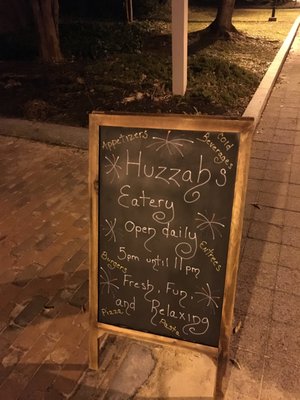 Appetizers
Cold
Beverages
Huzzahs
Eatery
Open daily
5pm until 11pm
Entrees
Fresh, Fun,
and Relaxing
Burgers
Pizza
Pasta